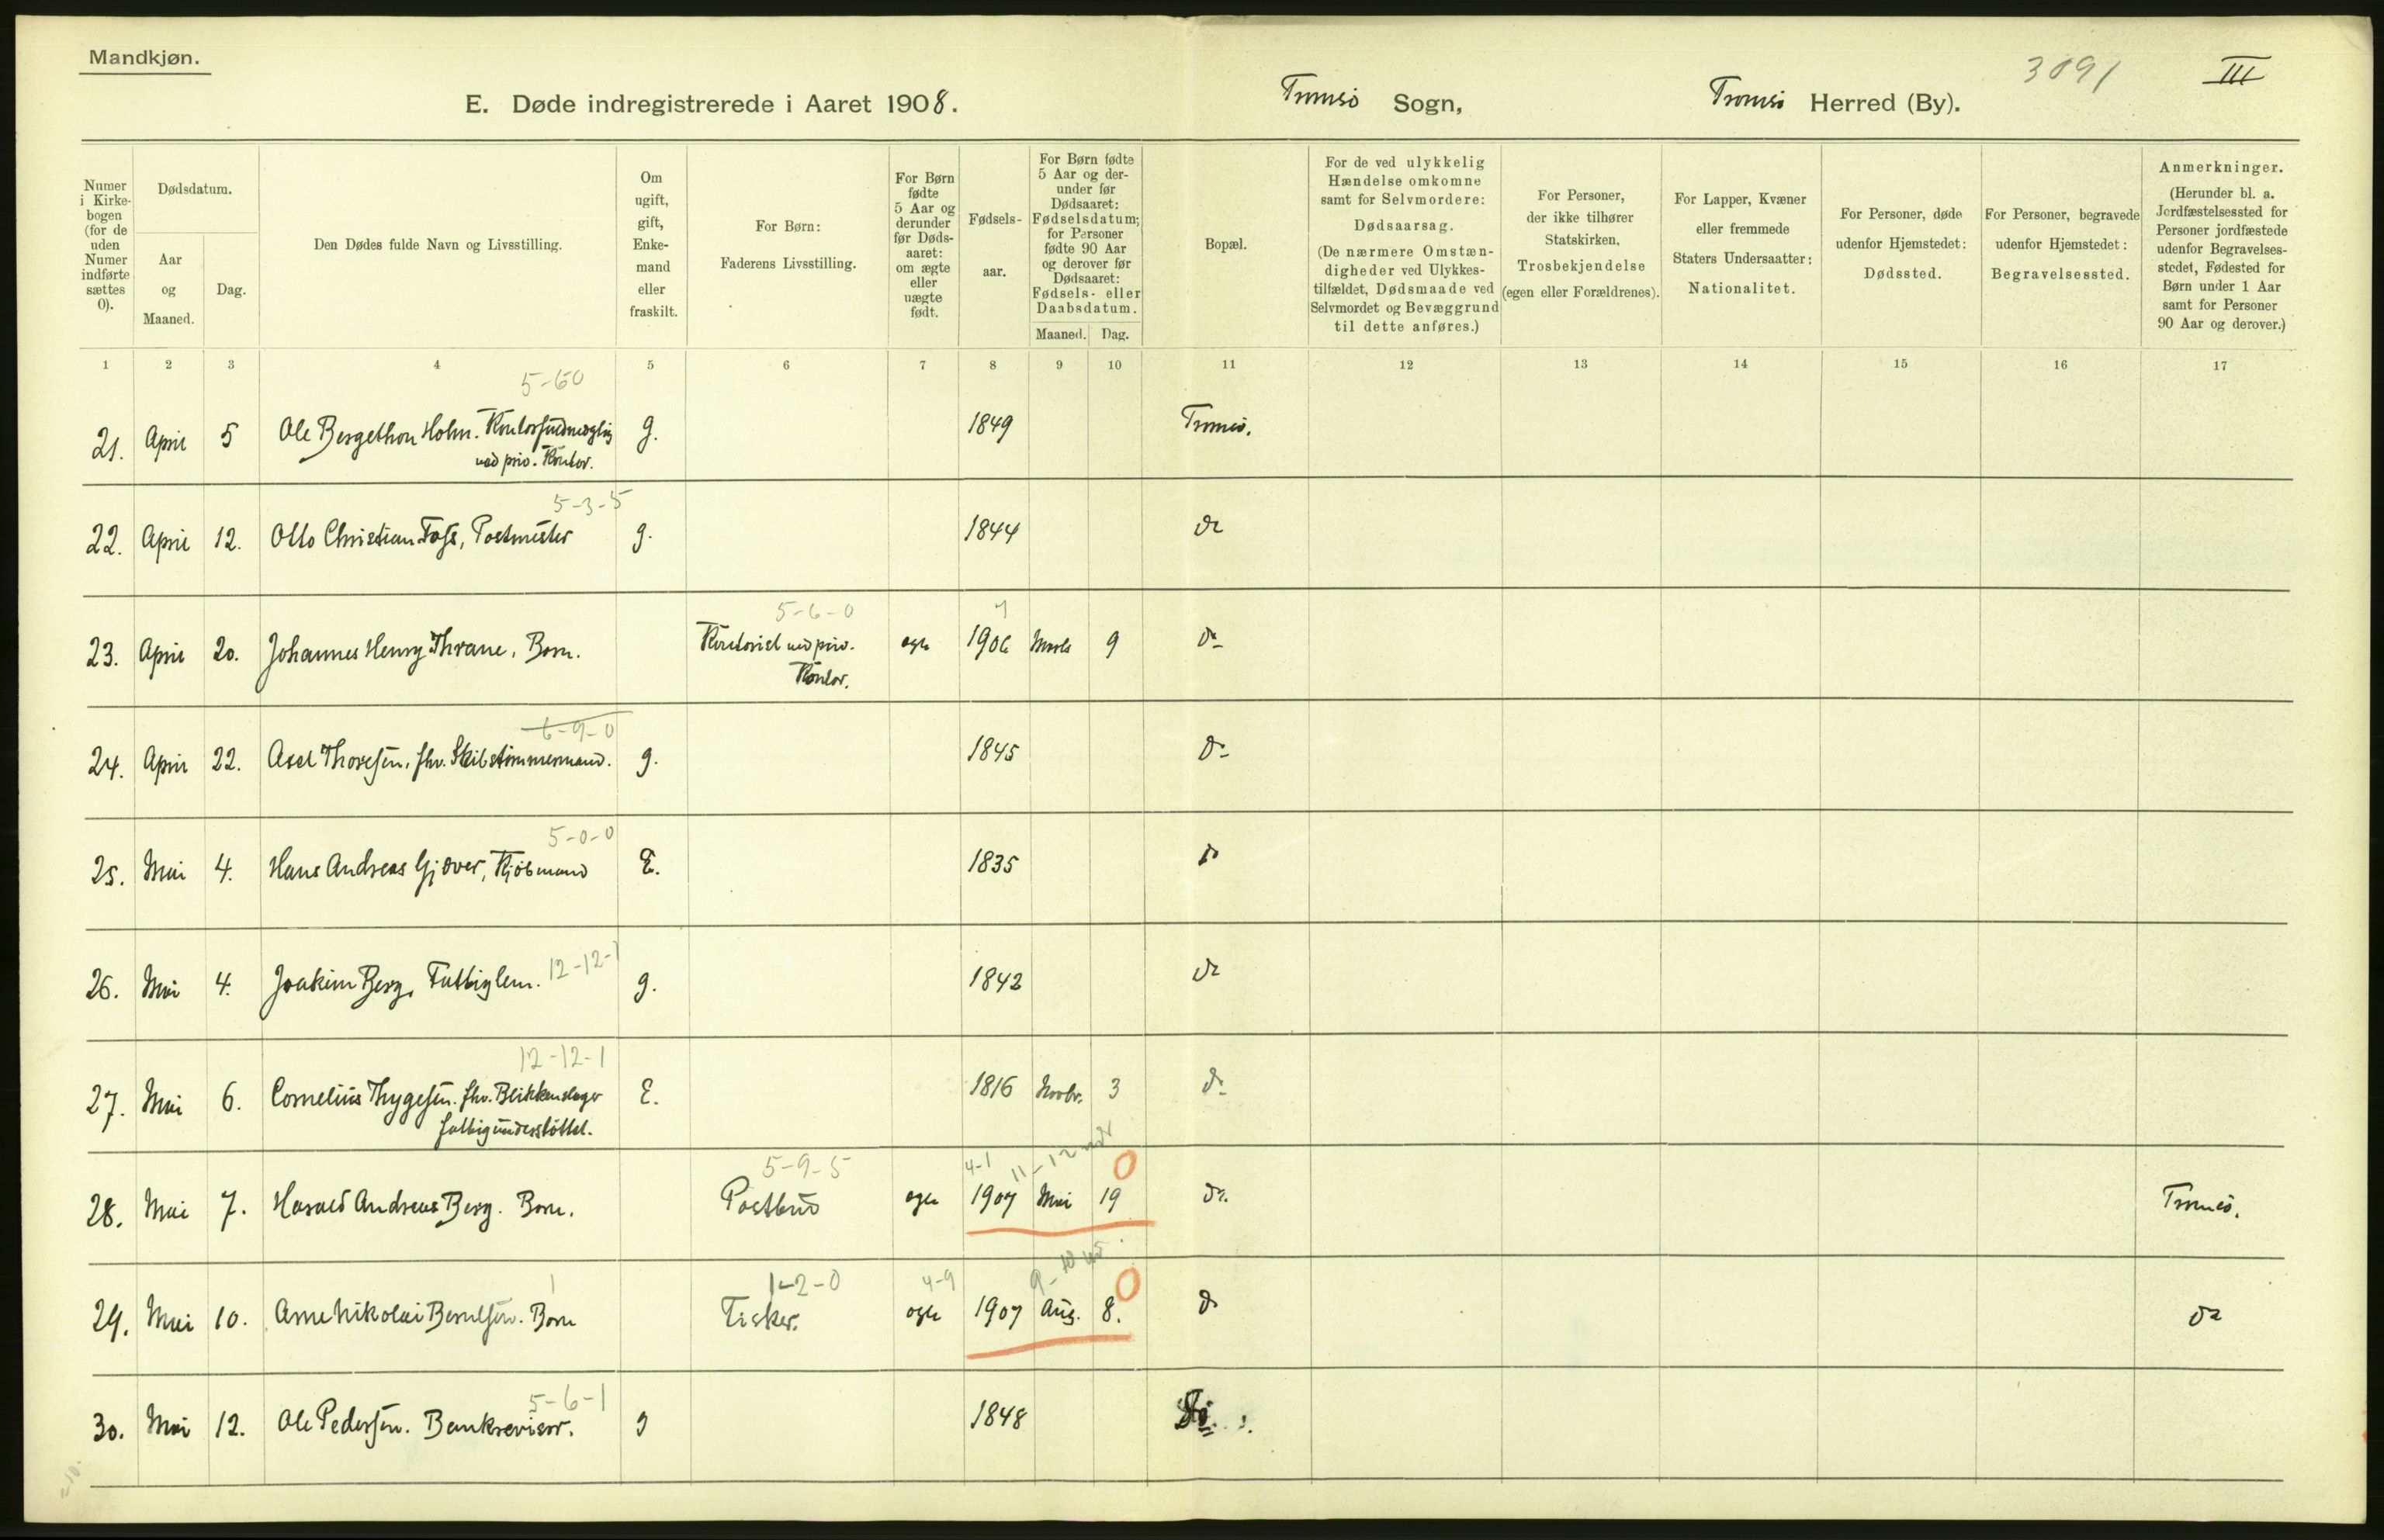 Mandkjøn.
3091
III
E. Døde indregistrerede i Aaret 1908.
Tromsö Sogn,
Tromsö Herred (By).
Numer i Kirkebogen (for de uden Numer indførte sættes 0).
Dødsdatum.
Aar og Maaned.
Dag.
Den Dødes fulde Navn og Livsstilling.
Om ugift, gift, Enkemand eller fraskilt.
For Børn: Faderens Livsstilling.
For Børn fødte 5 Aar og derunder før Dødsaaret: om ægte eller uægte født.
Fødselsaar.
For Børn fødte 5 Aar og derunder før Dødsaaret: Fødselsdatum; for Personer fødte 90 Aar og derover før Dødsaaret: Fødsels- eller Daabsdatum.
Maaned. Dag.
Bopæl.
For de ved ulykkelig Hændelse omkomne samt for Selvmordere: Dødsaarsag. (De nærmere Omstændigheder ved Ulykkestilfældet, Dødsmaade ved Selvmordet og Bevæggrund til dette anføres.)
For Personer, der ikke tilhører Statskirken, Trosbekjendelse (egen eller Forældrenes).
For Lapper, Kvæner eller fremmede Staters Undersaatter: Nationalitet.
For Personer, døde udenfor Hjemstedet: Dødssted.
For Personer, begravede udenfor Hjemstedet: Begravelsessted.
Anmerkninger. (Herunder bl. a. Jordfæstelsessted for Personer jordfæstede udenfor Begravelsesstedet, Fødested for Børn under 1 Aar samt for Personer 90 Aar og derover.)
1 2 3 4 5 6 7 8 9 10 11 12 13 14 15 16 17
5-60
21. April 5 Ole Bergethon Holm. Kontorfuldmægtig g. 1849 Tromsö.
ved priv. Kontor.
5-3-5
22. April 12. Otto Christian Foss, Postmester g. 1844 do
5-6-0 7
23. April 20. Johannes Henry Thrane, Barn. Kontorist ved priv. ægte 1906 Marts 9 do
Kontor.
6-9-0
24. April 22. Axel Thoresen, fhv. Skibstømmermand. g. 1845 do
5-0-0
25. Mai 4. Hans Andreas Gjæver, Kjøbmand E. 1835 do
12-12-1
26. Mai 4. Joakim Berg, Fattiglem. g. 1842 do
12-12-1
27. Mai 6. Cornelius Thygesen. fhv. Blikkenslager E. 1816 Novbr. 3 do
fattigunderstöttet.
5-9-5 4-1 11-12 0
28. Mai 7. Harald Andreas Berg. Barn. Postbud ægte 1907 Mai 19 do. Tromsö.
1 1-2-0 4-9 9-10 0
29. Mai 10. Arne Nikolai Berntsen. Barn Fisker. ægte 1907 Aug. 8. do do
5-6-1
30. Mai 12. Ole Pedersen. Bankrevisor. g 1848 do